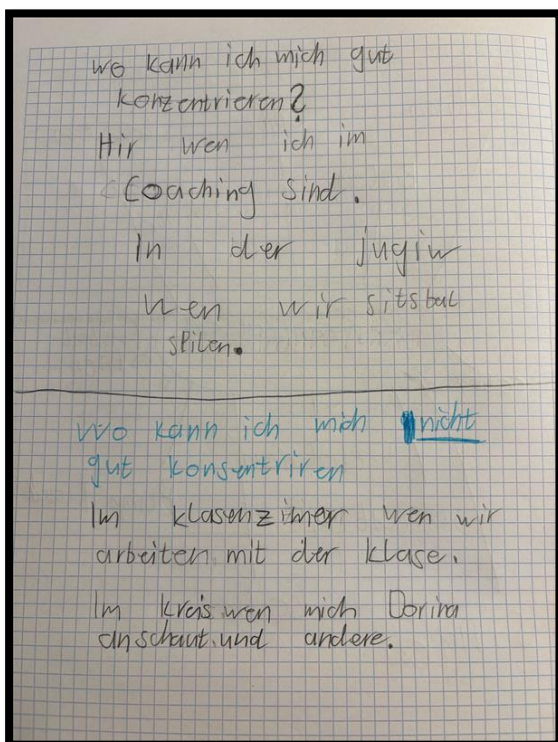 wo kann ich mich gut
konzentrieren?
Hir wen ich im
Coaching sind.
In der jugiw
wen wir sitsbal
spilen.
wo kann ich mich nicht
gut konsentriren
Im klasenzimer wen wir
arbeiten mit der klase.
Im kreis wen mich Dorina
anschaut.und andere.